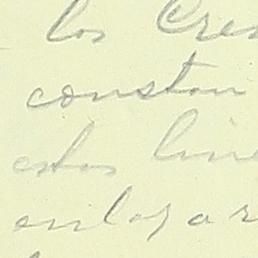 los Cres
constan
estas line
enlazar